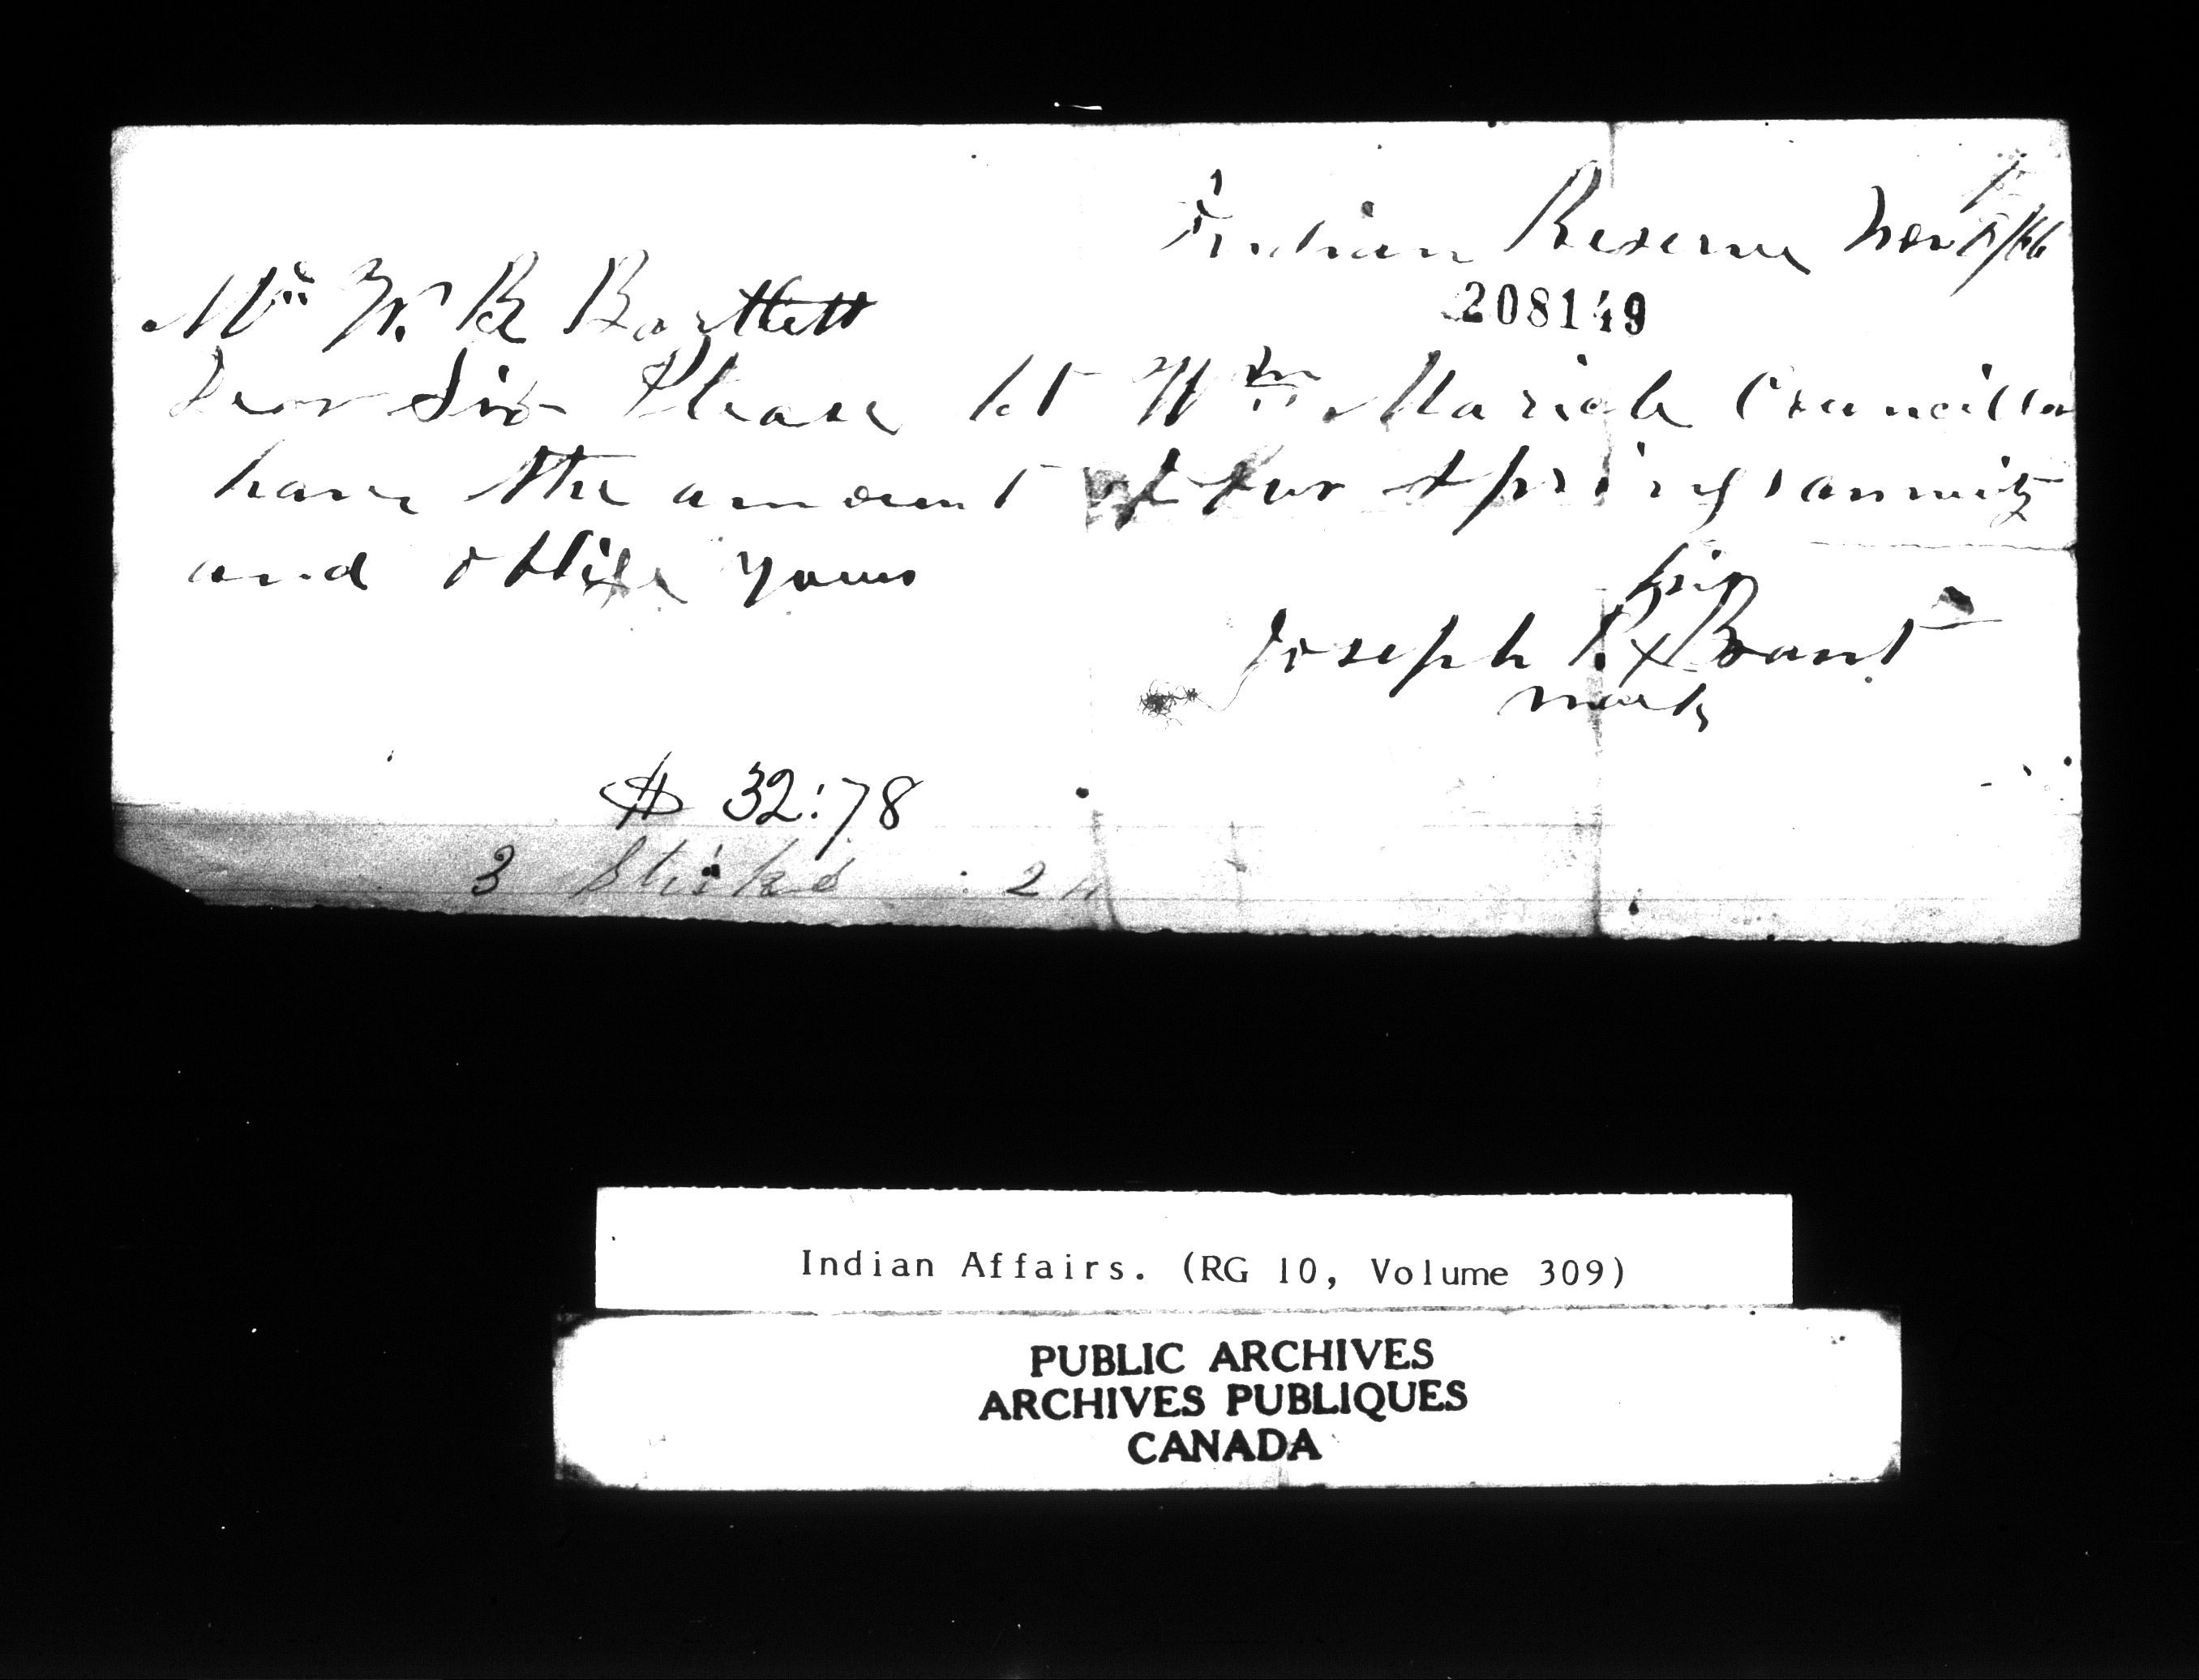 Indian Reserve Nov
208149
Mr Wm R Bartlett
Dear Sir Please let Wm Maricle Councillor
have the amount of our Spring annuity
and oblige yours
his
Joseph X Brant
mark
$ 32:78
3 Sticks
Indian Affairs. (RG 10, Volume 309)
PUBLIC ARCHIVES
ARCHIVES PUBLIQUES
CANADA